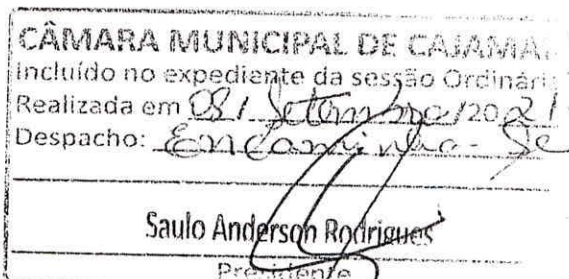 CÂMARA MUNICIPAL DE CAJAMA
Incluído no expediente da sessão Ordinári
Realizada em 08/ Setembro /2021
Despacho: Encaminha-se
Saulo Anderson Rodrigues
Presidente